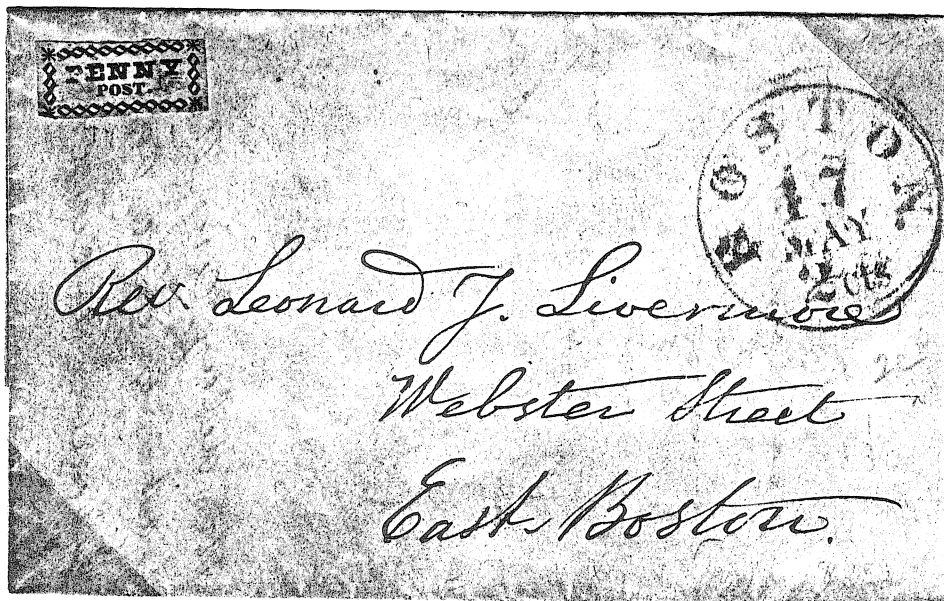 PENNY
POST.
BOSTON
17
MAY
2cts
Rev. Leonard J. Livermore
Webster Street
East Boston.